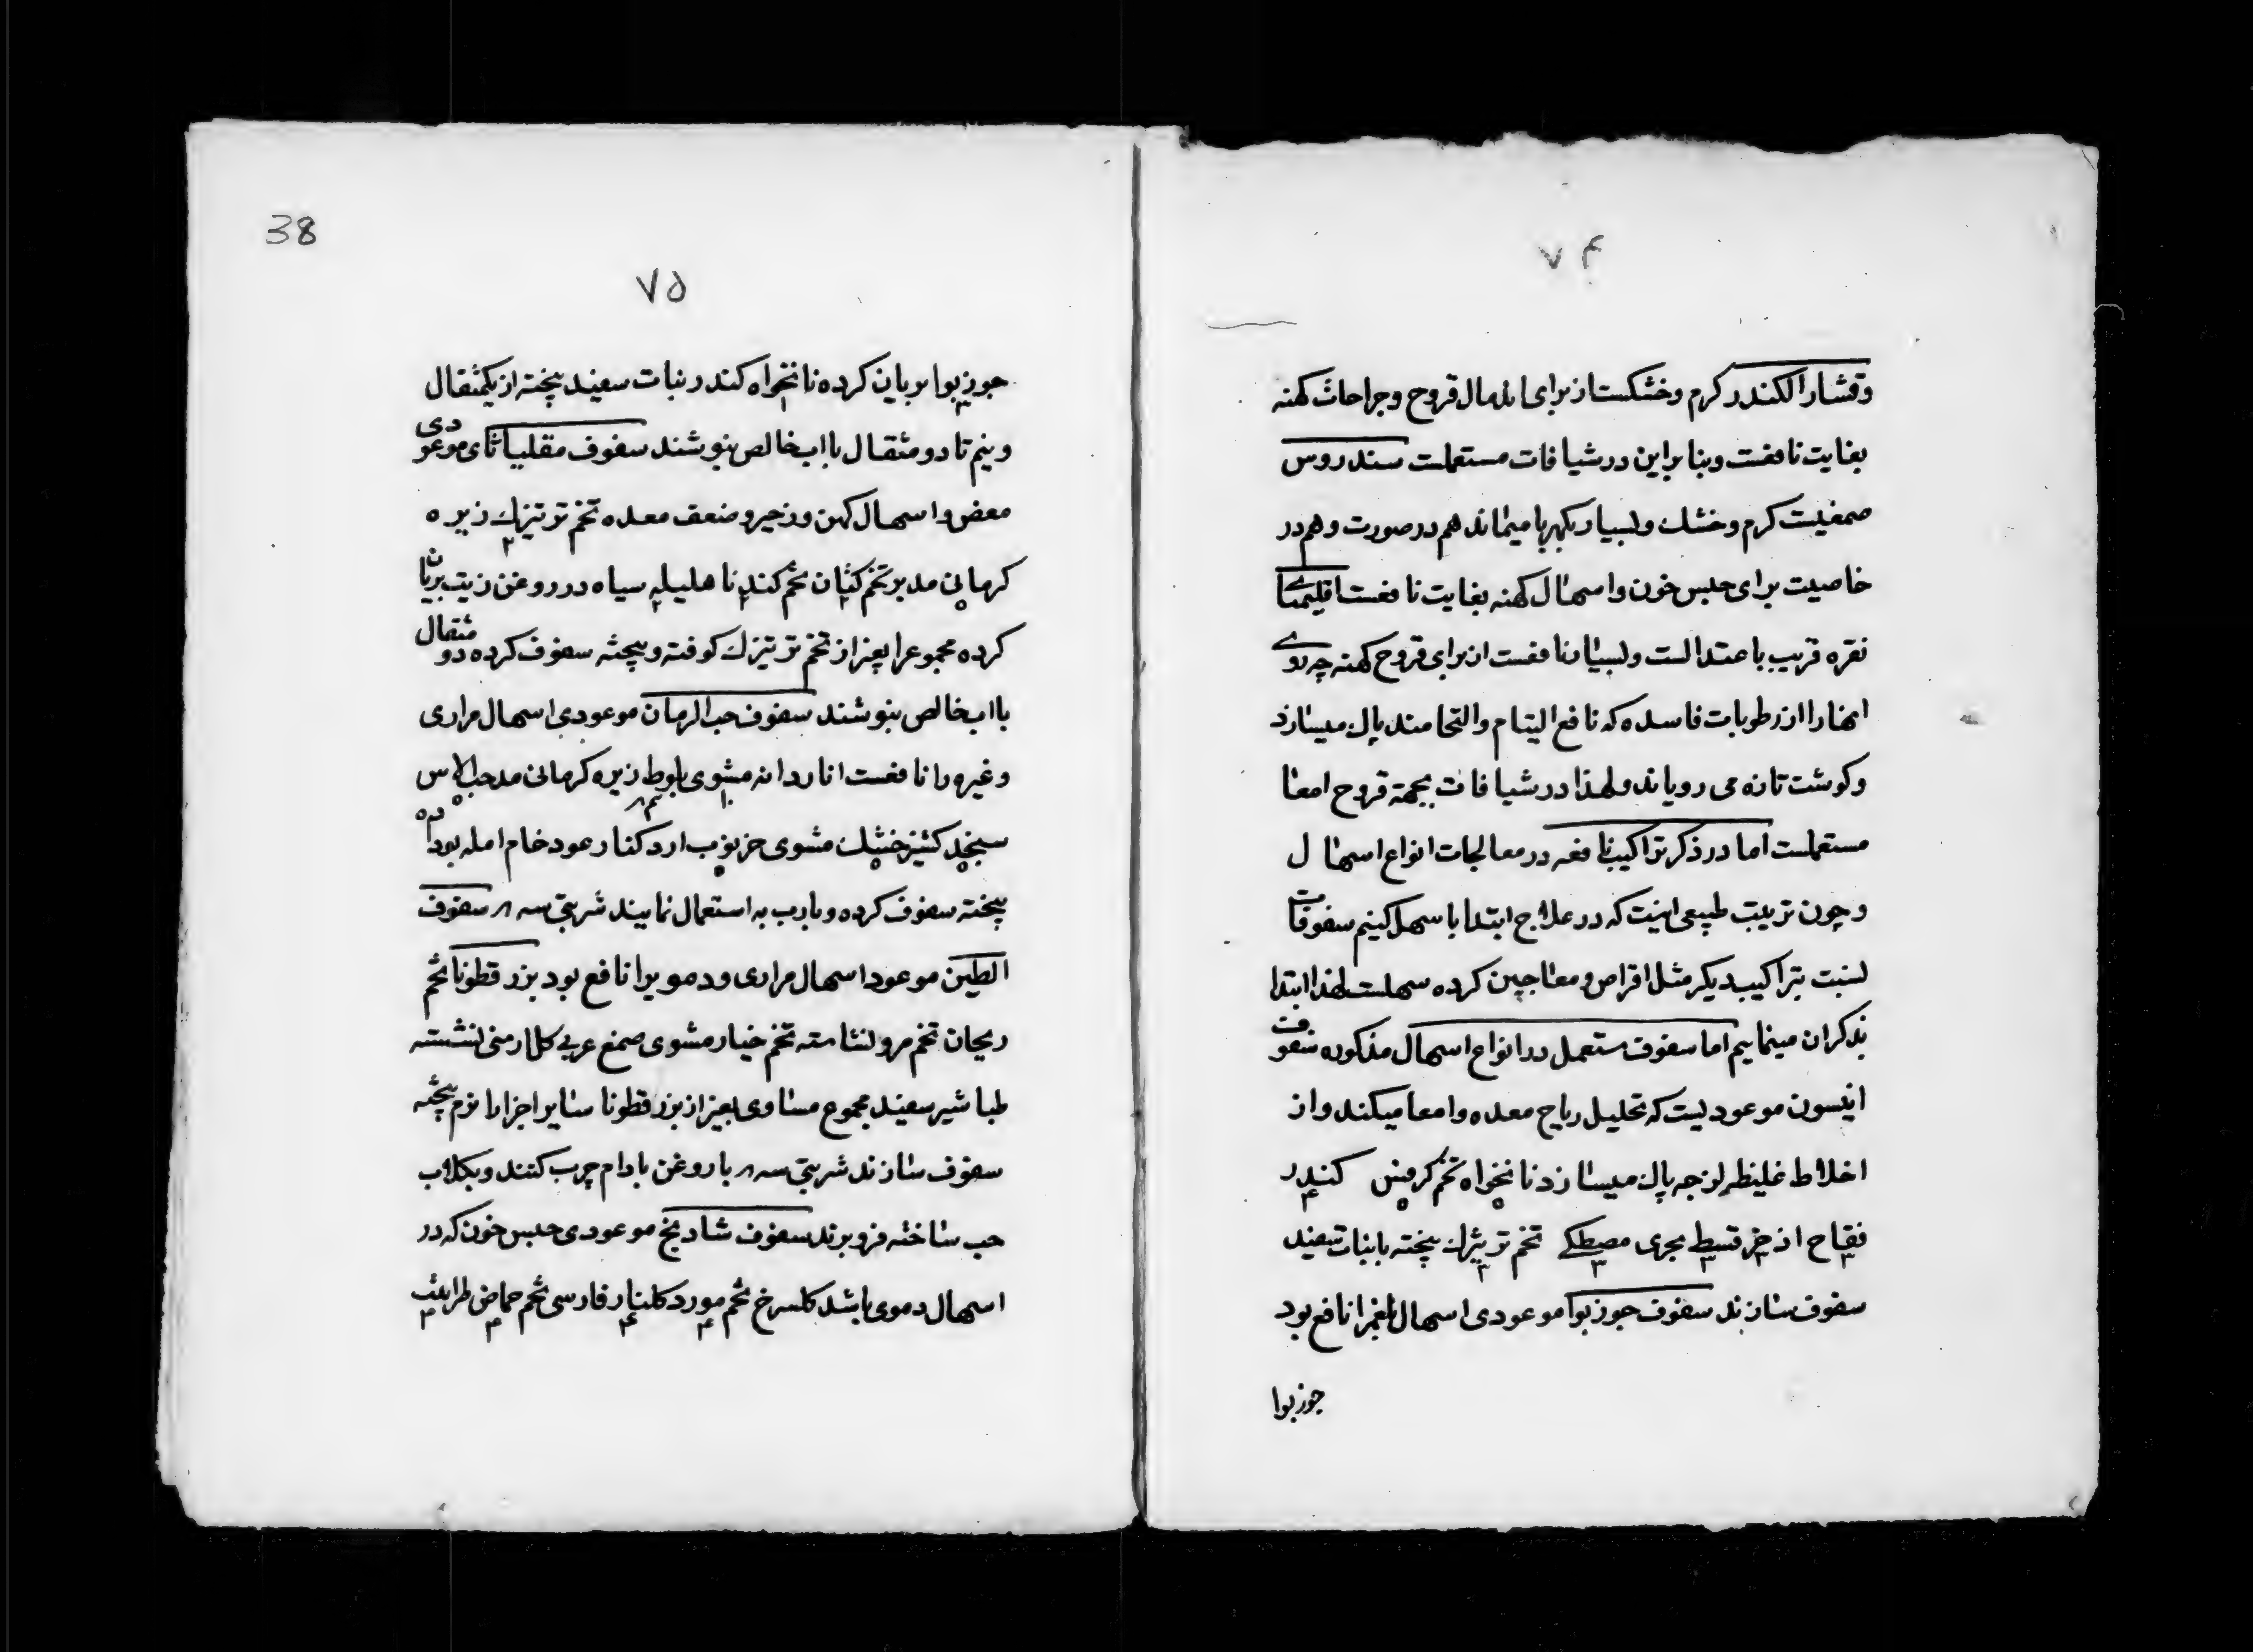 ۷۴
وقشار الکندر کرم وخشکست از برای اندمال قروح وجراحات کهنه
بغایت نافعست وبنابراین در شیافات مستعملست سندروس
صمغیست کرم وخشک وبسیار بکهربا میماند هم در صورت وهم در
خاصیت برای حبس خون واسهال کهنه بغایت نافعست اقلیمیای
نقره قریب باعتدالست وبسیار نافعست از برای قروح کهنه چه
انهارا از رطوبات فاسده که نافع التیام والتحامند پاک میسازد
وکوشت تازه می رویاند ولهذا در شیافات بجهته قروح امعا
مستعملست اما در ذکر تراکیب نافعه در معالجات انواع اسهال
وچون تربیت طبیعی اینست که در علاج ابتدا باسهل کنیم سفوفات
نسبت بتراکیب دیکر مثل اقراص ومعاجین کرده سهلست لهذا ابتدا
بذکر ان مینماییم اما سفوف مستعمل در انواع اسهال مذکوره سفوف
انیسون موعودیست که تحلیل ریاح معده وامعا میکند واز
اخلاط غلیظ لزجه پاک میسازد نانخواه تخم کرفس ۵ کندر ۴
فقاح اذخر ۳ قسط بحری ۳ مصطکی ۳ تخم ترتیزک ۳ بیخته بانبات سفید
سفوف سازند سفوف جوزبوا موعودی اسهال بلغمرا نافع بود
جوزبوا
38
۷۵
جوزبوا بریان کرده نانخواه کندر نبات سفید بیخته از یکمثقال
ونیم تا دو مثقال باب خالص بنوشند سفوف مقلیاثای موعودی
مغص واسهال کهن وزحیر وضعف معده تخم ترتیزک ۲ زیره
کرمانی مدبر تخم کتان تخم کندنا هلیله سیاه در روغن زیت بریان
کرده مجموعرا بغیر از تخم ترتیزک کوفته وبیخته سفوف کرده دو مثقال
باب خالص بنوشند سفوف حب الرمان موعودی اسهال مراری
وغیره را نافعست اناردانه مشوی ۱۰ بلوط زیره کرمانی مد حب الاس
سنجد کشنیز خشک مشوی خرنوب ارد کنار عود خام امله بوداده
بیخته سفوف کرده وبارب به استعمال نمایند شربتی سه م سفوف
الطین موعود اسهال مراری ودمویرا نافع بود بزر قطونا تخم
ریحان تخم مرو نشاسته تخم خیار مشوی صمغ عربی کل ارمنی نشسته
طباشیر سفید مجموع مساوی بغیر از بزر قطونا سایر اجزارا نرم بیخته
سفوف سازند شربتی سه م با روغن بادام چرب کنند وبکلاب
حب ساخته فرو برند سفوف شادنج موعودی حبس خون که در
اسهال دموی باشد کلسرخ تخم مورد ۴ کلنار ۴ فارسی تخم حماض ۴ طراثیث ۳